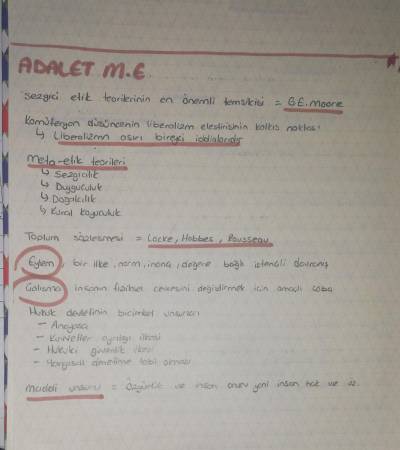 ADALET M.E
Sezgici etik teorilerinin en önemli temsilcisi = G.E. Moore
Komüteryan düşüncenin liberalizm eleştirisinin kalkış noktası
↳ Liberalizmin aşırı bireyci iddialarıdır
Meta-etik teorileri
↳ Sezgicilik
↳ Duyguculuk
↳ Doğalcılık
↳ Kural koyuculuk
Toplum sözleşmesi = Locke, Hobbes, Rousseau
Eylem, bir ilke, norm, inanç, değere bağlı istençli davranış
Çalışma insanın fiziksel çevresini değiştirmek için amaçlı çaba
Hukuk devletinin biçimsel unsurları
- Anayasa
- Kuvvetler ayrılığı ilkesi
- Hukuki güvenlik ilkesi
- Yargısal denetime tabi olması
Maddi unsuru = Özgürlük ve insan onuru yani insan hak ve öz.